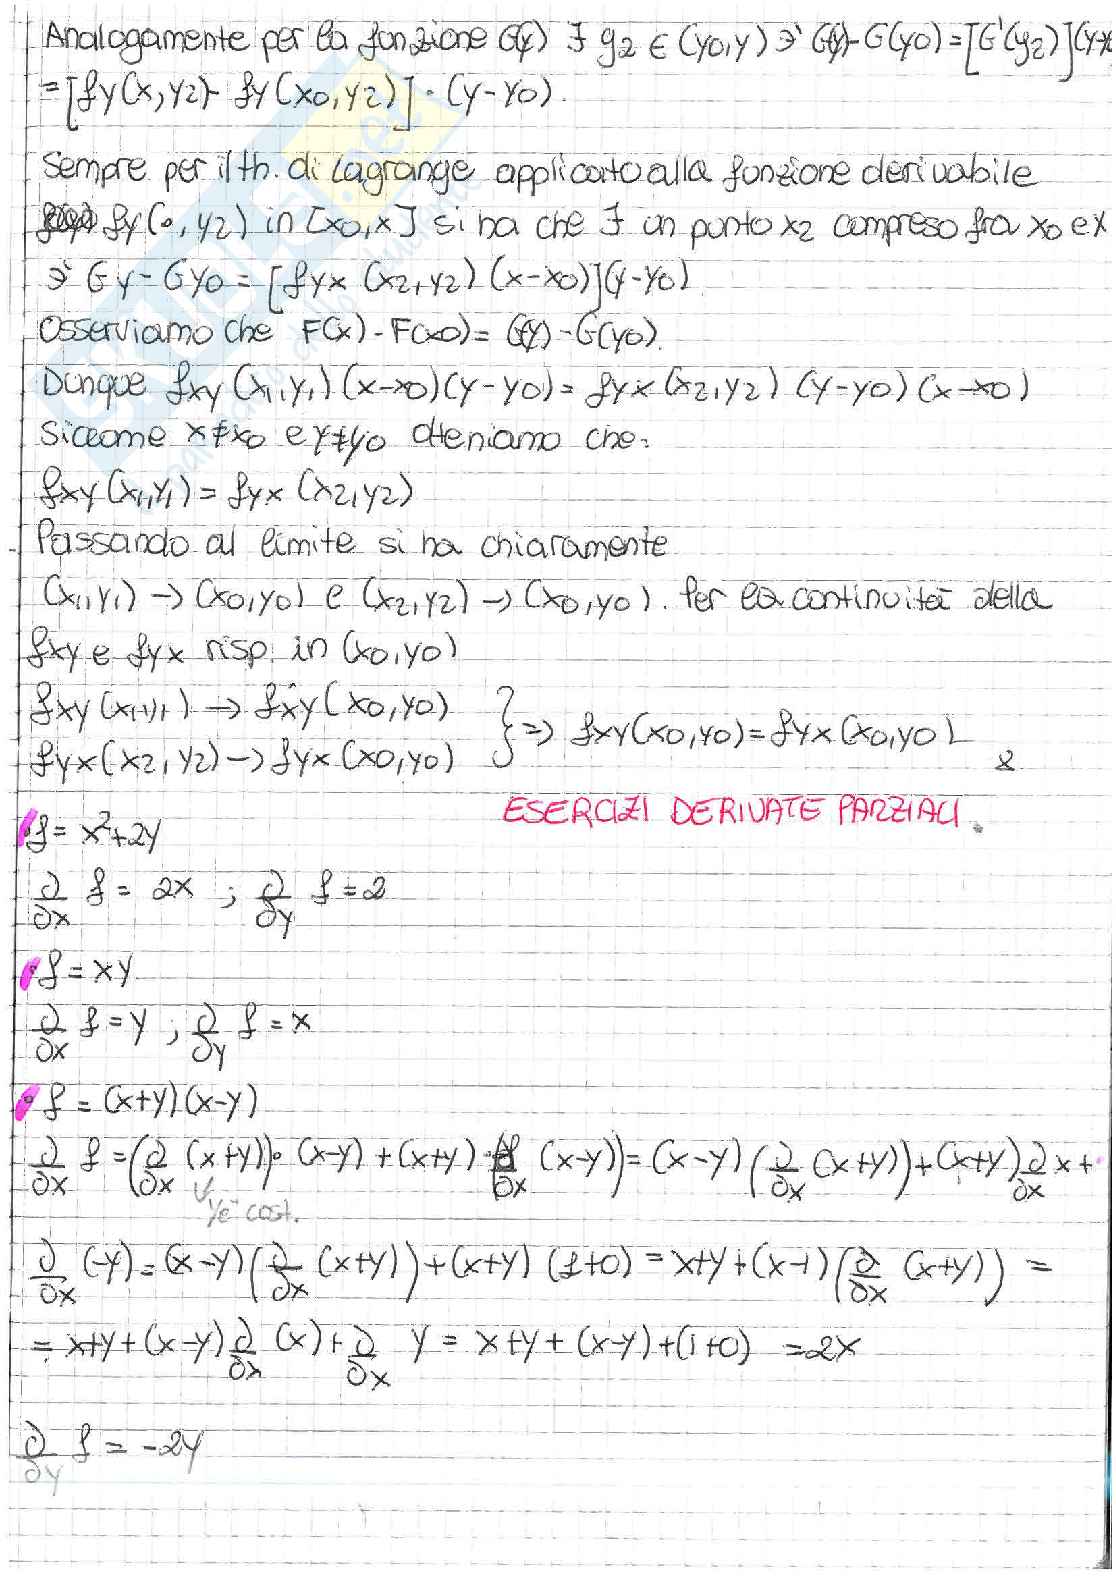 Analogamente per la funzione G(y) ∃ y2 ∈ (y0,y) ∋' G(y)-G(y0) = [G'(y2)](y-y
= [fy(x,y2)- fy(x0,y2)] · (y-y0).
Sempre per il th. di Lagrange applicato alla funzione derivabile
fy(·,y2) in [x0,x] si ha che ∃ un punto x2 compreso fra x0 e x
∋' Gy - Gy0 = [fyx (x2,y2) (x-x0)](y-y0)
Osserviamo che F(x) - F(x0) = G(y) - G(y0).
Dunque fxy (x1,y1) (x-x0)(y-y0) = fyx (x2,y2) (y-y0) (x-x0)
Siccome x≠x0 e y≠y0 otteniamo che:
fxy (x1,y1) = fyx (x2,y2)
Passando al limite si ha chiaramente
(x1,y1) → (x0,y0) e (x2,y2) → (x0,y0). Per la continuità della
fxy e fyx risp. in (x0,y0)
fxy (x1,y1) → fxy (x0,y0)
fyx (x2,y2) → fyx (x0,y0) } => fxy(x0,y0) = fyx (x0,y0)
ESERCIZI DERIVATE PARZIALI.
• f = x²+2y
∂/∂x f = 2x ; ∂/∂y f = 2
• f = xy
∂/∂x f = y ; ∂/∂y f = x
• f = (x+y)(x-y)
∂/∂x f = (∂/∂x (x+y)) · (x-y) + (x+y) · (∂/∂x (x-y)) = (x-y) (∂/∂x (x+y)) + (x+y) ∂/∂x x +
y è cost.
∂/∂x (-y) = (x-y) (∂/∂x (x+y)) + (x+y) (1+0) = x+y + (x-1) (∂/∂x (x+y)) =
= x+y + (x-y) ∂/∂x (x) + ∂/∂x y = x+y + (x-y) + (1+0) = 2x
∂/∂y f = -2y